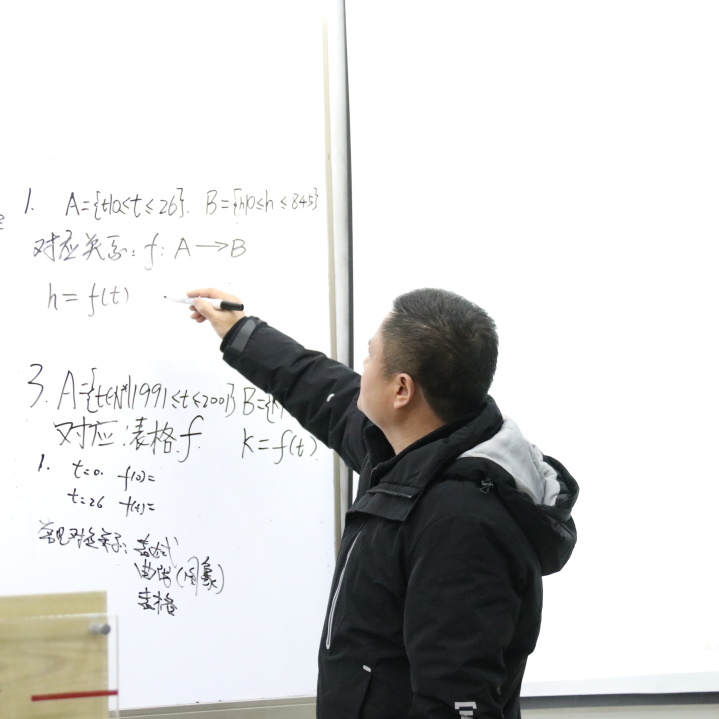 1. A={t|0≤t≤26}. B={h|0≤h≤845}
对应关系: f: A→B
h=f(t)
3. A={t∈N*|1991≤t≤2001} B={k
对应:表格f. k=f(t)
1. t=0. f(0)=
t=26 f(t)=
常见对应关系: 表达式
曲线(图象)
表格